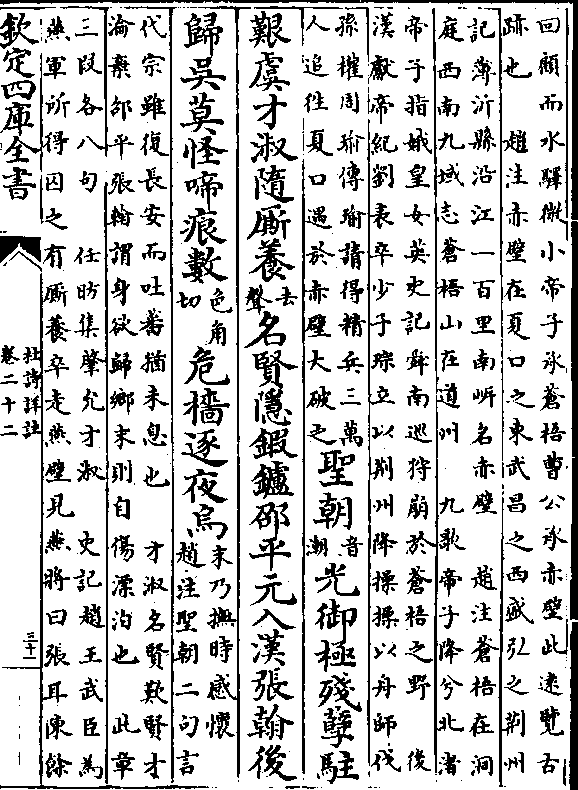 回顧而水驛微小帝子承蒼梧曹公承赤壁此遠覽古
跡也 趙注赤壁在夏口之東武昌之西盛弘之荆州
記薄沂縣沿江一百里南岍名赤壁 趙注蒼梧在洞
庭西南九域志蒼梧山在道州 九歌帝子降兮北渚
帝子指娥皇女英史記舜南巡狩崩於蒼梧之野 後
漢獻帝紀劉表卒少子琮立以荆州降操操以舟師伐
孫權周瑜傳瑜請得精兵三萬
人追往夏口遇於赤壁大破之
聖朝音潮光御極殘孽駐
艱虞才淑隨厮養去聲名賢隱鍜鑪邵平元入漢張翰後
歸吳莫怪啼痕數色角切危檣逐夜烏
末乃撫時感懷
趙注聖朝二句言
代宗雖復長安而吐蕃猶未息也 才淑名賢歎賢才
淪棄邵平張翰謂身欲歸鄉末則自傷漂泊也 此章
三段各八句 任昉集肇允才淑 史記趙王武臣為
燕軍所得囚之有厮養卒走燕壁見燕將曰張耳陳餘
欽定四庫全書
杜詩詳註
卷二十二
三十一